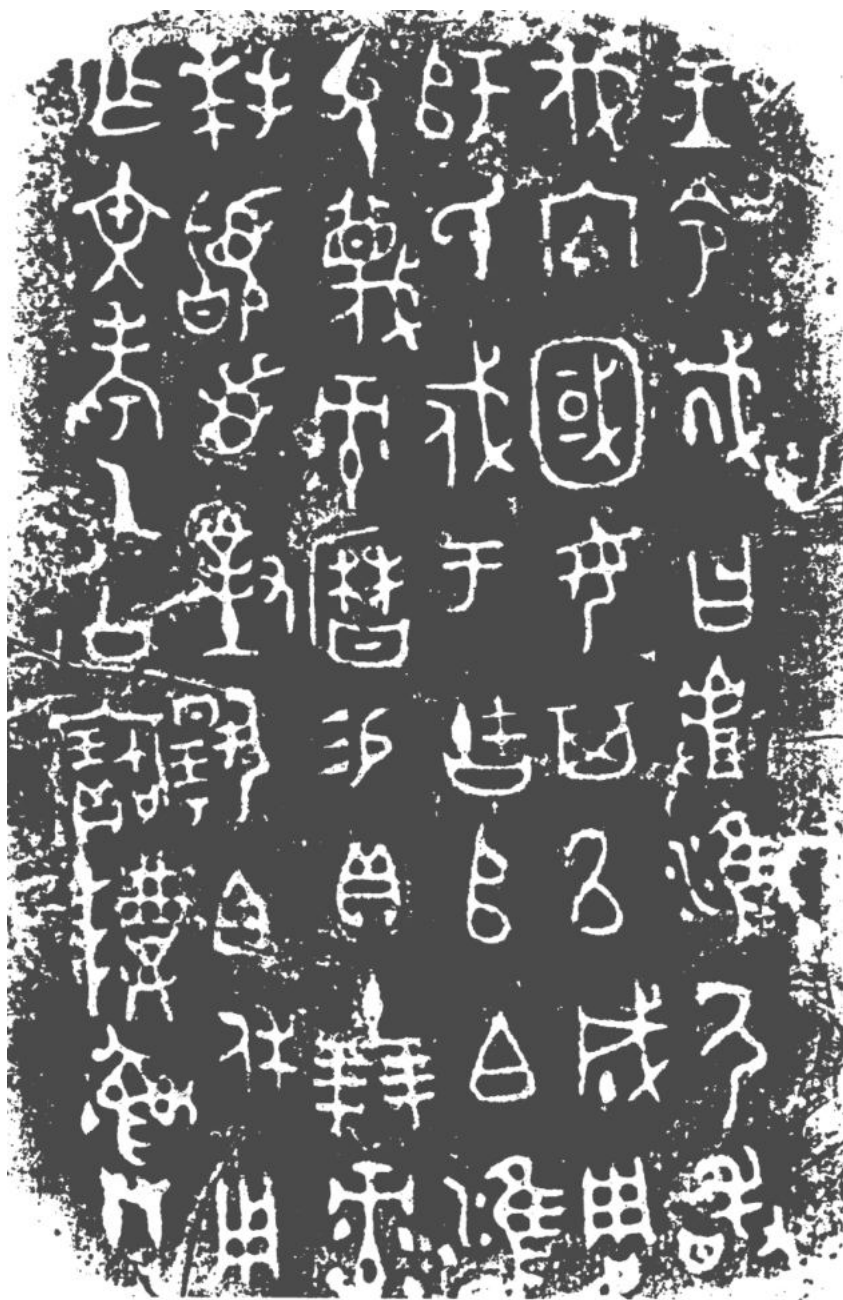 王令㦰曰𠭯淮尸敢
伐内國女其㠯成周
師氏戍于𠦪𠂤白雝
父蔑彔曆易貝十朋彔
拜𩒨首對揚白休用
乍文考乙公寶𨺅彝